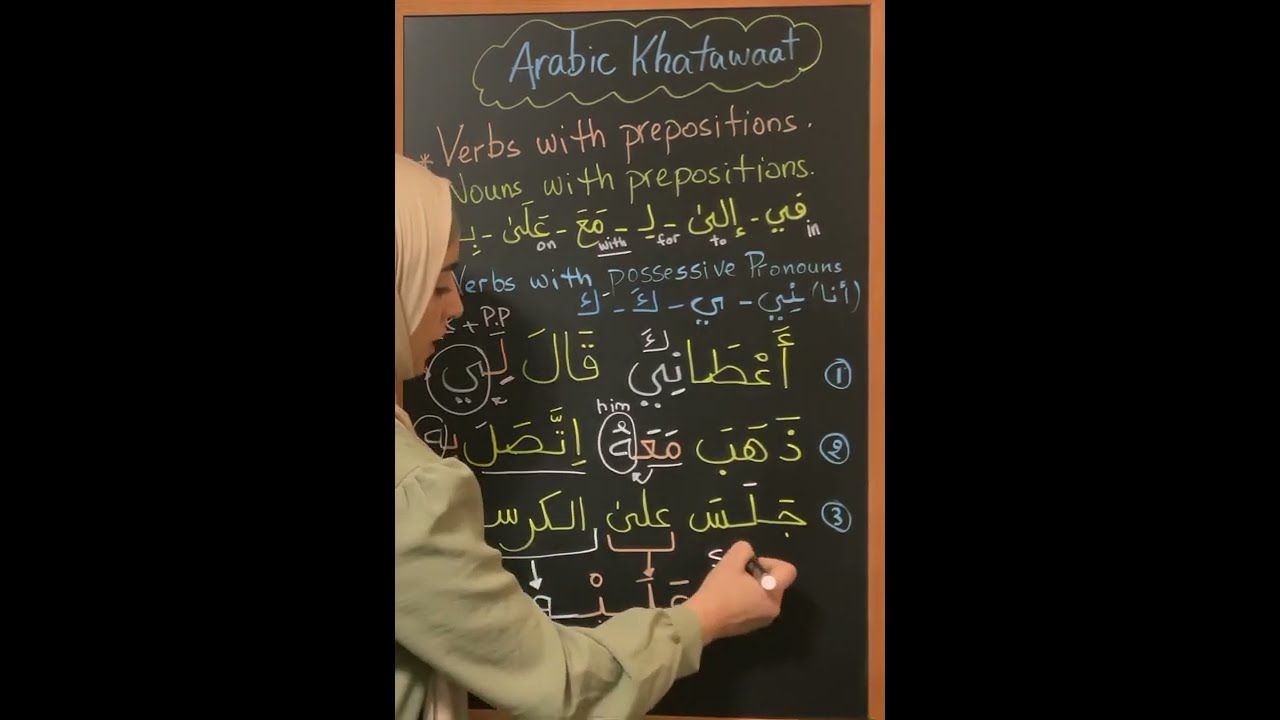 Arabic Khatawaat
* Verbs with prepositions.
Nouns with prepositions.
في - إلىٰ - لِـ - مَعَ - عَلَىٰ - بِـ
in to for with on
Verbs with possessive Pronouns
(أنا) نِي - ي - كَ - كِ
+ P.P
① أَعْطَانِي كَ قَالَ لِي
him
② ذَهَبَ مَعَهُ اِتَّصَلَ بِهِ
③ جَلَسَ علىٰ الكرس